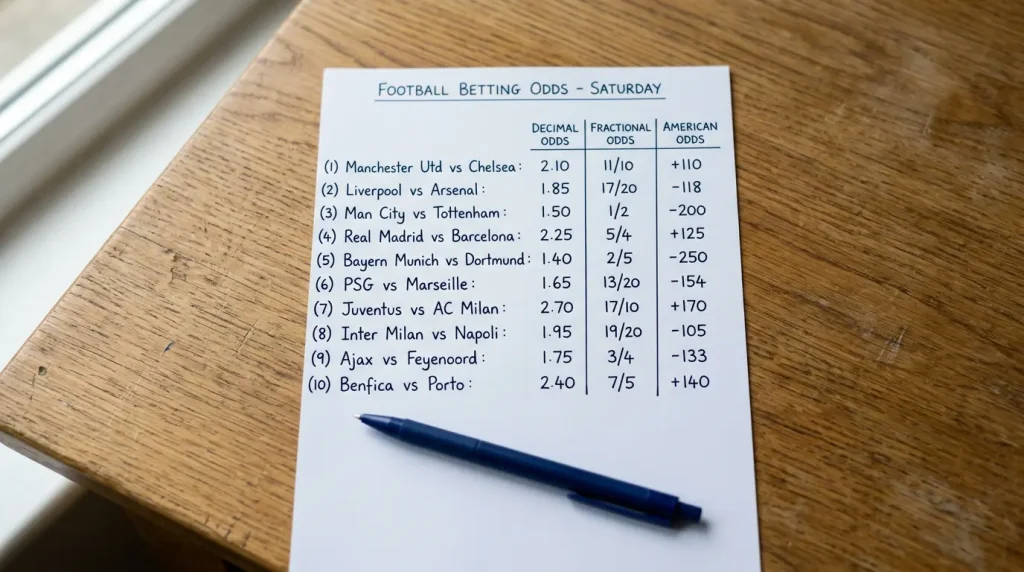 FOOTBALL BETTING ODDS – SATURDAY
DECIMAL ODDS FRACTIONAL ODDS AMERICAN ODDS
(1) Manchester Utd vs Chelsea: 2.10 11/10 +110
(2) Liverpool vs Arsenal: 1.85 17/20 -118
(3) Man City vs Tottenham: 1.50 1/2 -200
(4) Real Madrid vs Barcelona: 2.25 5/4 +125
(5) Bayern Munich vs Dortmund: 1.40 2/5 -250
(6) PSG vs Marseille: 1.65 13/20 -154
(7) Juventus vs AC Milan: 2.70 17/10 +170
(8) Inter Milan vs Napoli: 1.95 19/20 -105
(9) Ajax vs Feyenoord: 1.75 3/4 -133
(10) Benfica vs Porto: 2.40 7/5 +140